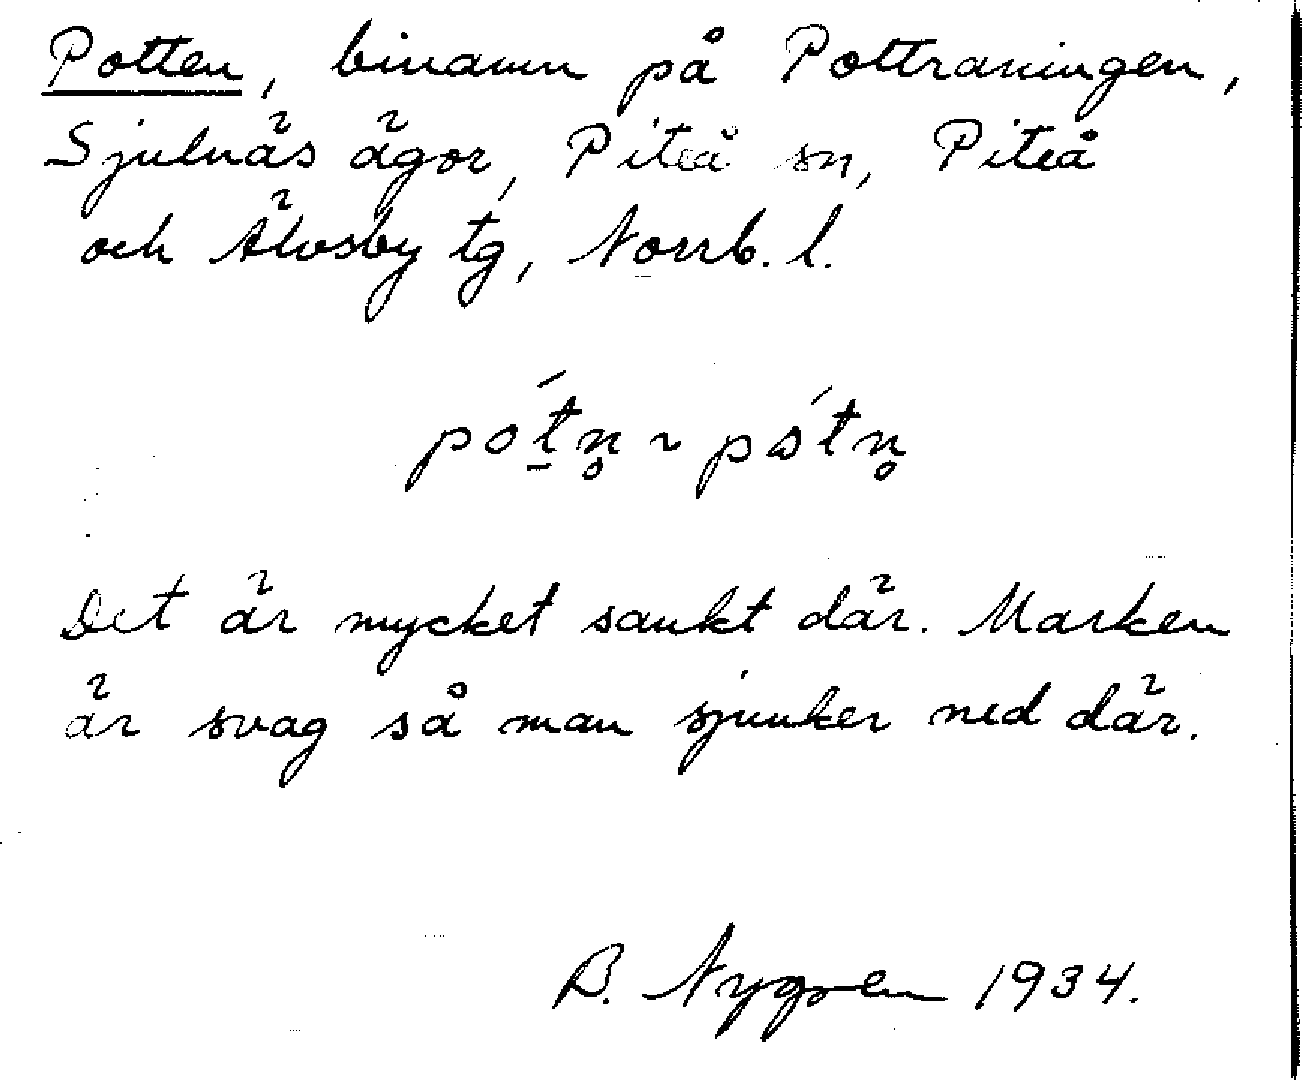 Potten, binamn på Pottraningen,
Sjulnäs ägor, Piteå sn, Piteå
och Älvsby tg, Norrb. l.
pót̠n̥ ~ påtn̥
Det är mycket sankt där. Marken
är svag så man sjunker ned där.
B. Nygren 1934.